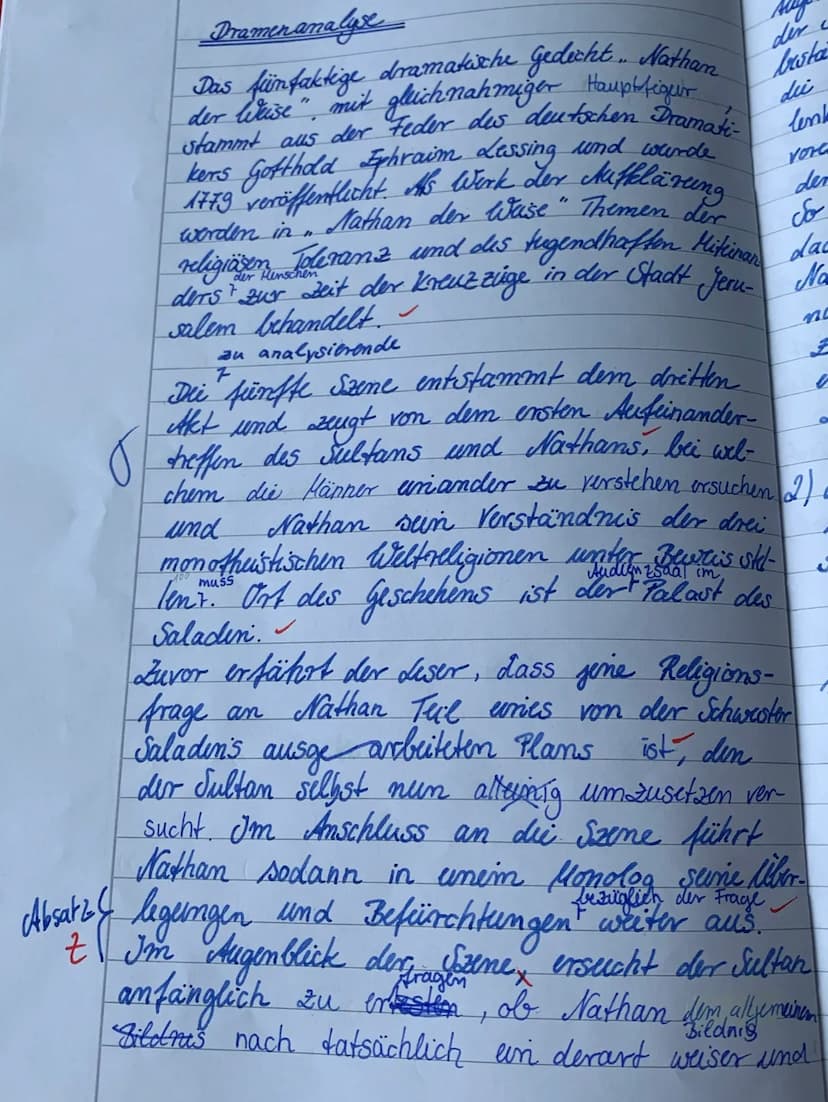 Dramenanalyse
Das fünfaktige dramatische Gedicht „Nathan
der Weise", mit gleichnahmiger Hauptfigur,
stammt aus der Feder des deutschen Dramati-
kers Gotthold Ephraim Lessing und wurde
1779 veröffentlicht. Als Werk der Aufklärung
werden in „Nathan der Weise" Themen der
religiösen Toleranz und des tugendhaften Miteinan
der Menschen
ders zur Zeit der Kreuzzüge in der Stadt Jeru-
salem behandelt.
zu analysierende
Die fünfte Szene entstammt dem dritten
Akt und zeugt von dem ersten Aufeinander-
treffen des Sultans und Nathans, bei wel-
chem die Männer einander zu verstehen ersuchen
und Nathan sein Verständnis der drei
monotheistischen Weltreligionen unter Beweis stel-
muss Audienzsaal im
len. Ort des Geschehens ist der Palast des
Saladin.
Zuvor erfährt der Leser, dass jene Religions-
frage an Nathan Teil eines von der Schwester
Saladins ausgearbeiteten Plans ist, den
der Sultan selbst nun alleinig umzusetzen ver-
sucht. Im Anschluss an die Szene führt
Nathan sodann in einem Monolog seine Über-
bezüglich der Frage
Absatz legungen und Befürchtungen weiter aus.
Z Im Augenblick der Szene ersucht der Sultan
fragen
anfänglich zu er , ob Nathan dem allgemeinen
Bildnis
Bildnis nach tatsächlich ein derart weiser und
der
die
lenk
den
So
Na
2)